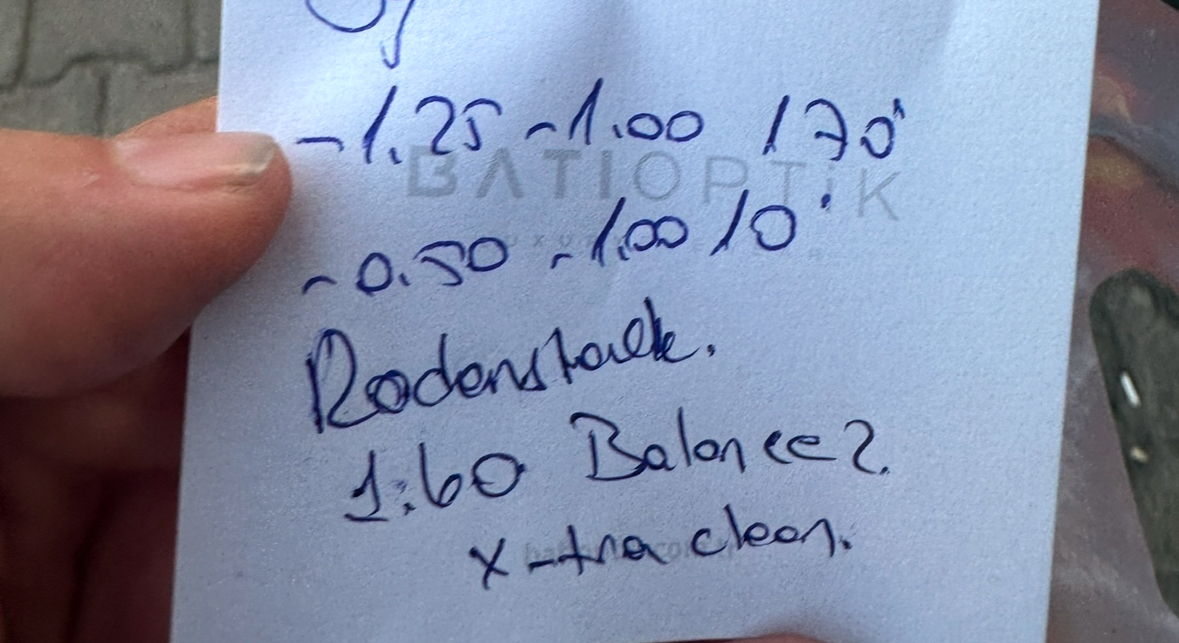 -1.25 -1.00 170°
BATIOPTiK
-0.50 -1.00 10°
Rodenstack.
1.60 Balance 2.
x-tra clean.